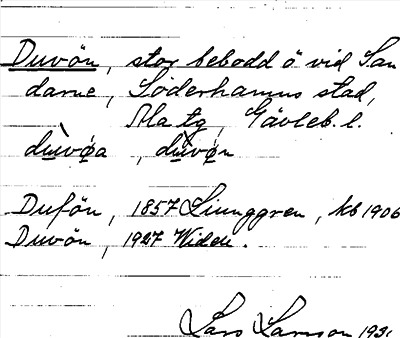 Duvön, stor bebodd ö vid San
darne, Söderhamns stad,
Ala tg, Gävleb. l.
dùvøa, dùvøn
Dufön, 1857 Ljunggren, kb 1906
Duvön, 1927 Widéu.
Lars Larsson 193